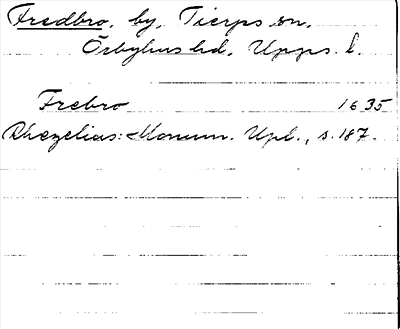 Fredbro, by, Tierps sn,
Örbyhus hd, Upps. l.
Frebro 1635
Rhezelius: Monum. Upl., s. 187.